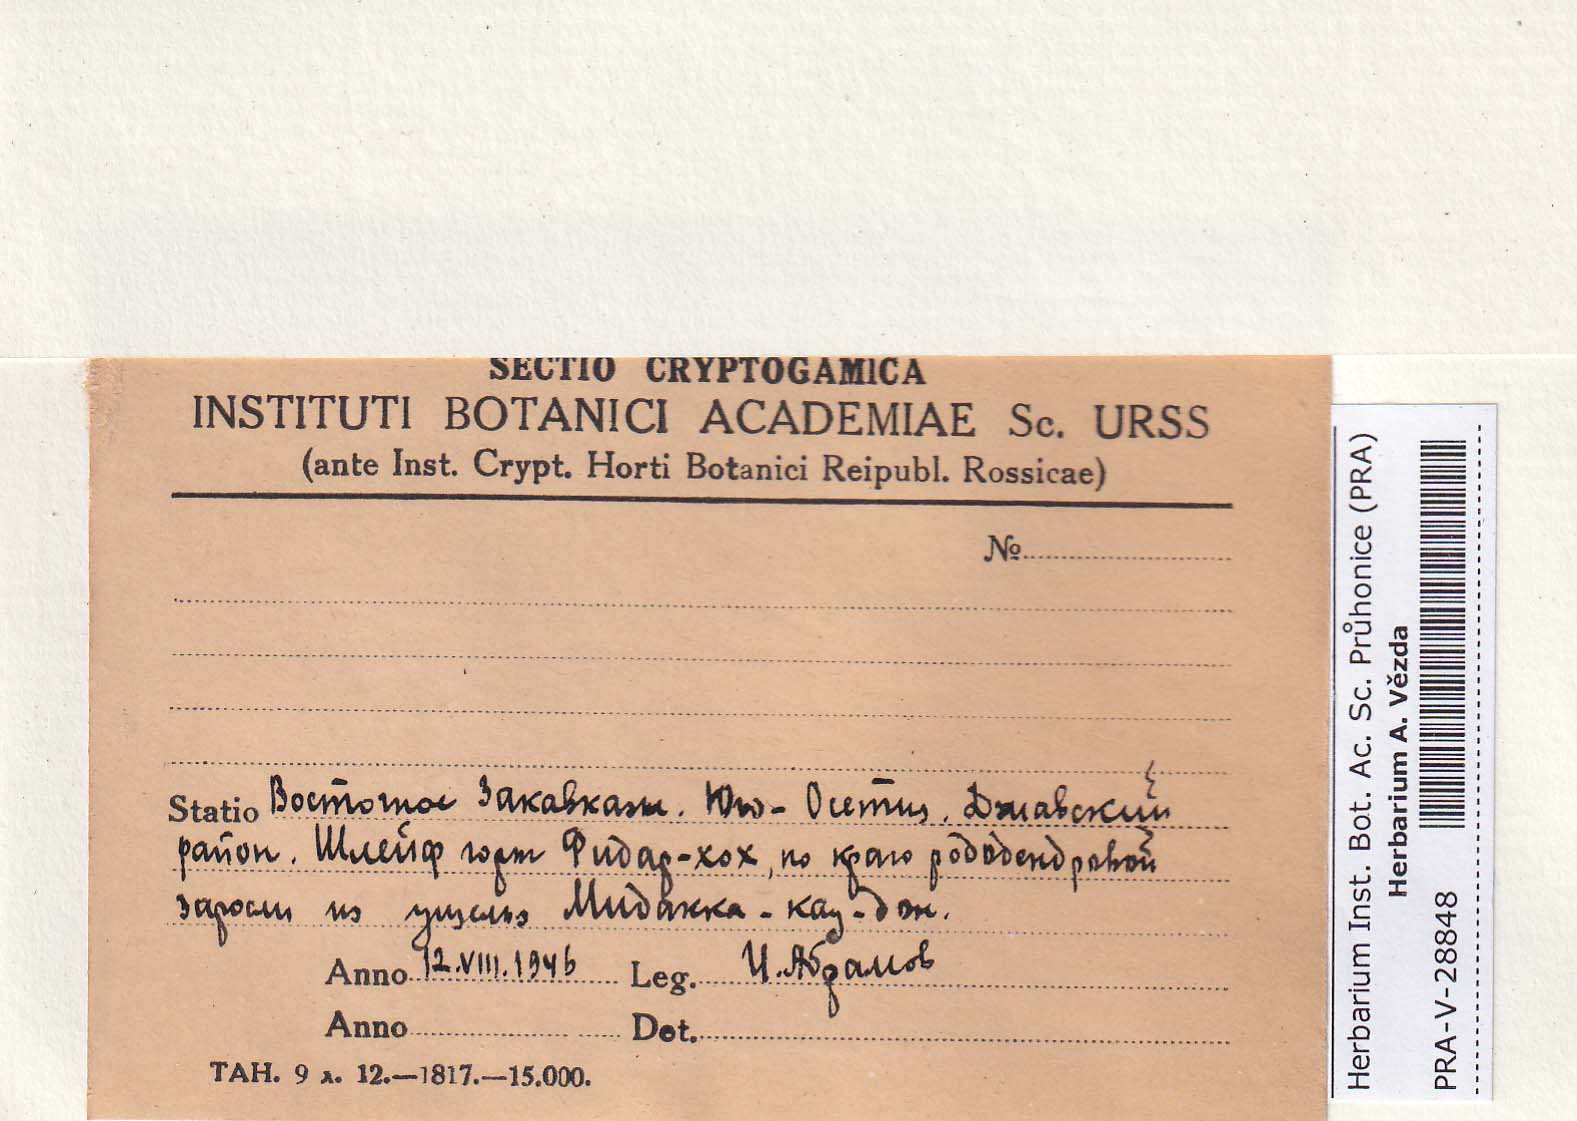 SECTIO CRYPTOGAMICA
INSTITUTI BOTANICI ACADEMIAE Sc. URSS
(ante Inst. Crypt. Horti Botanici Reipubl. Rossicae)
№
Statio Восточное Закавказье. Юго-Осетия. Джавский
район. Шлейф горы Фидар-хох, по краю рододендровой
заросли из ущелья Мидакка-кау-дон.
Anno 12.VIII.1946 Leg. И.Абрамов
Anno Det.
ТАН. 9 л. 12.—1817.—15.000.
Herbarium Inst. Bot. Ac. Sc. Průhonice (PRA)
Herbarium A. Vězda
PRA-V-28848